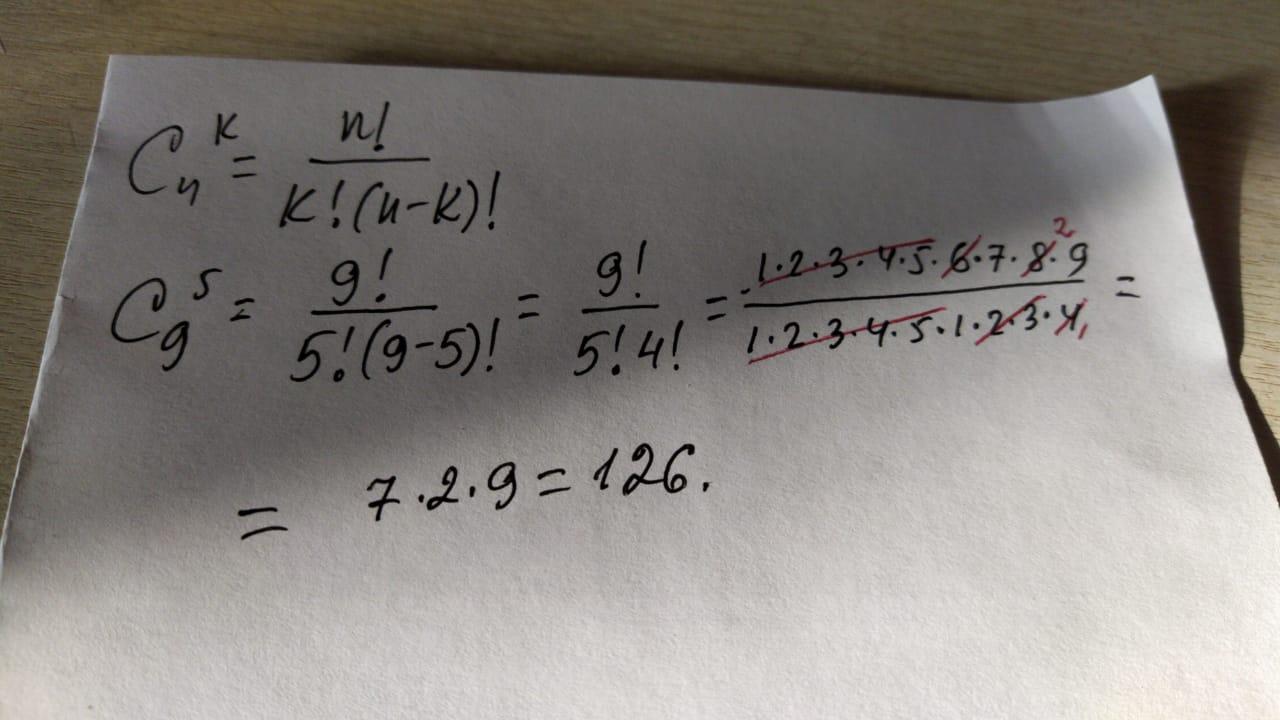 C_n^k = n! / k!(n-k)!
C_9^5 = 9! / 5!(9-5)! = 9! / 5!4! = 1·2·3·4·5·6·7·8²·9 / 1·2·3·4·5·1·2·3·4₁ =
= 7·2·9 = 126.